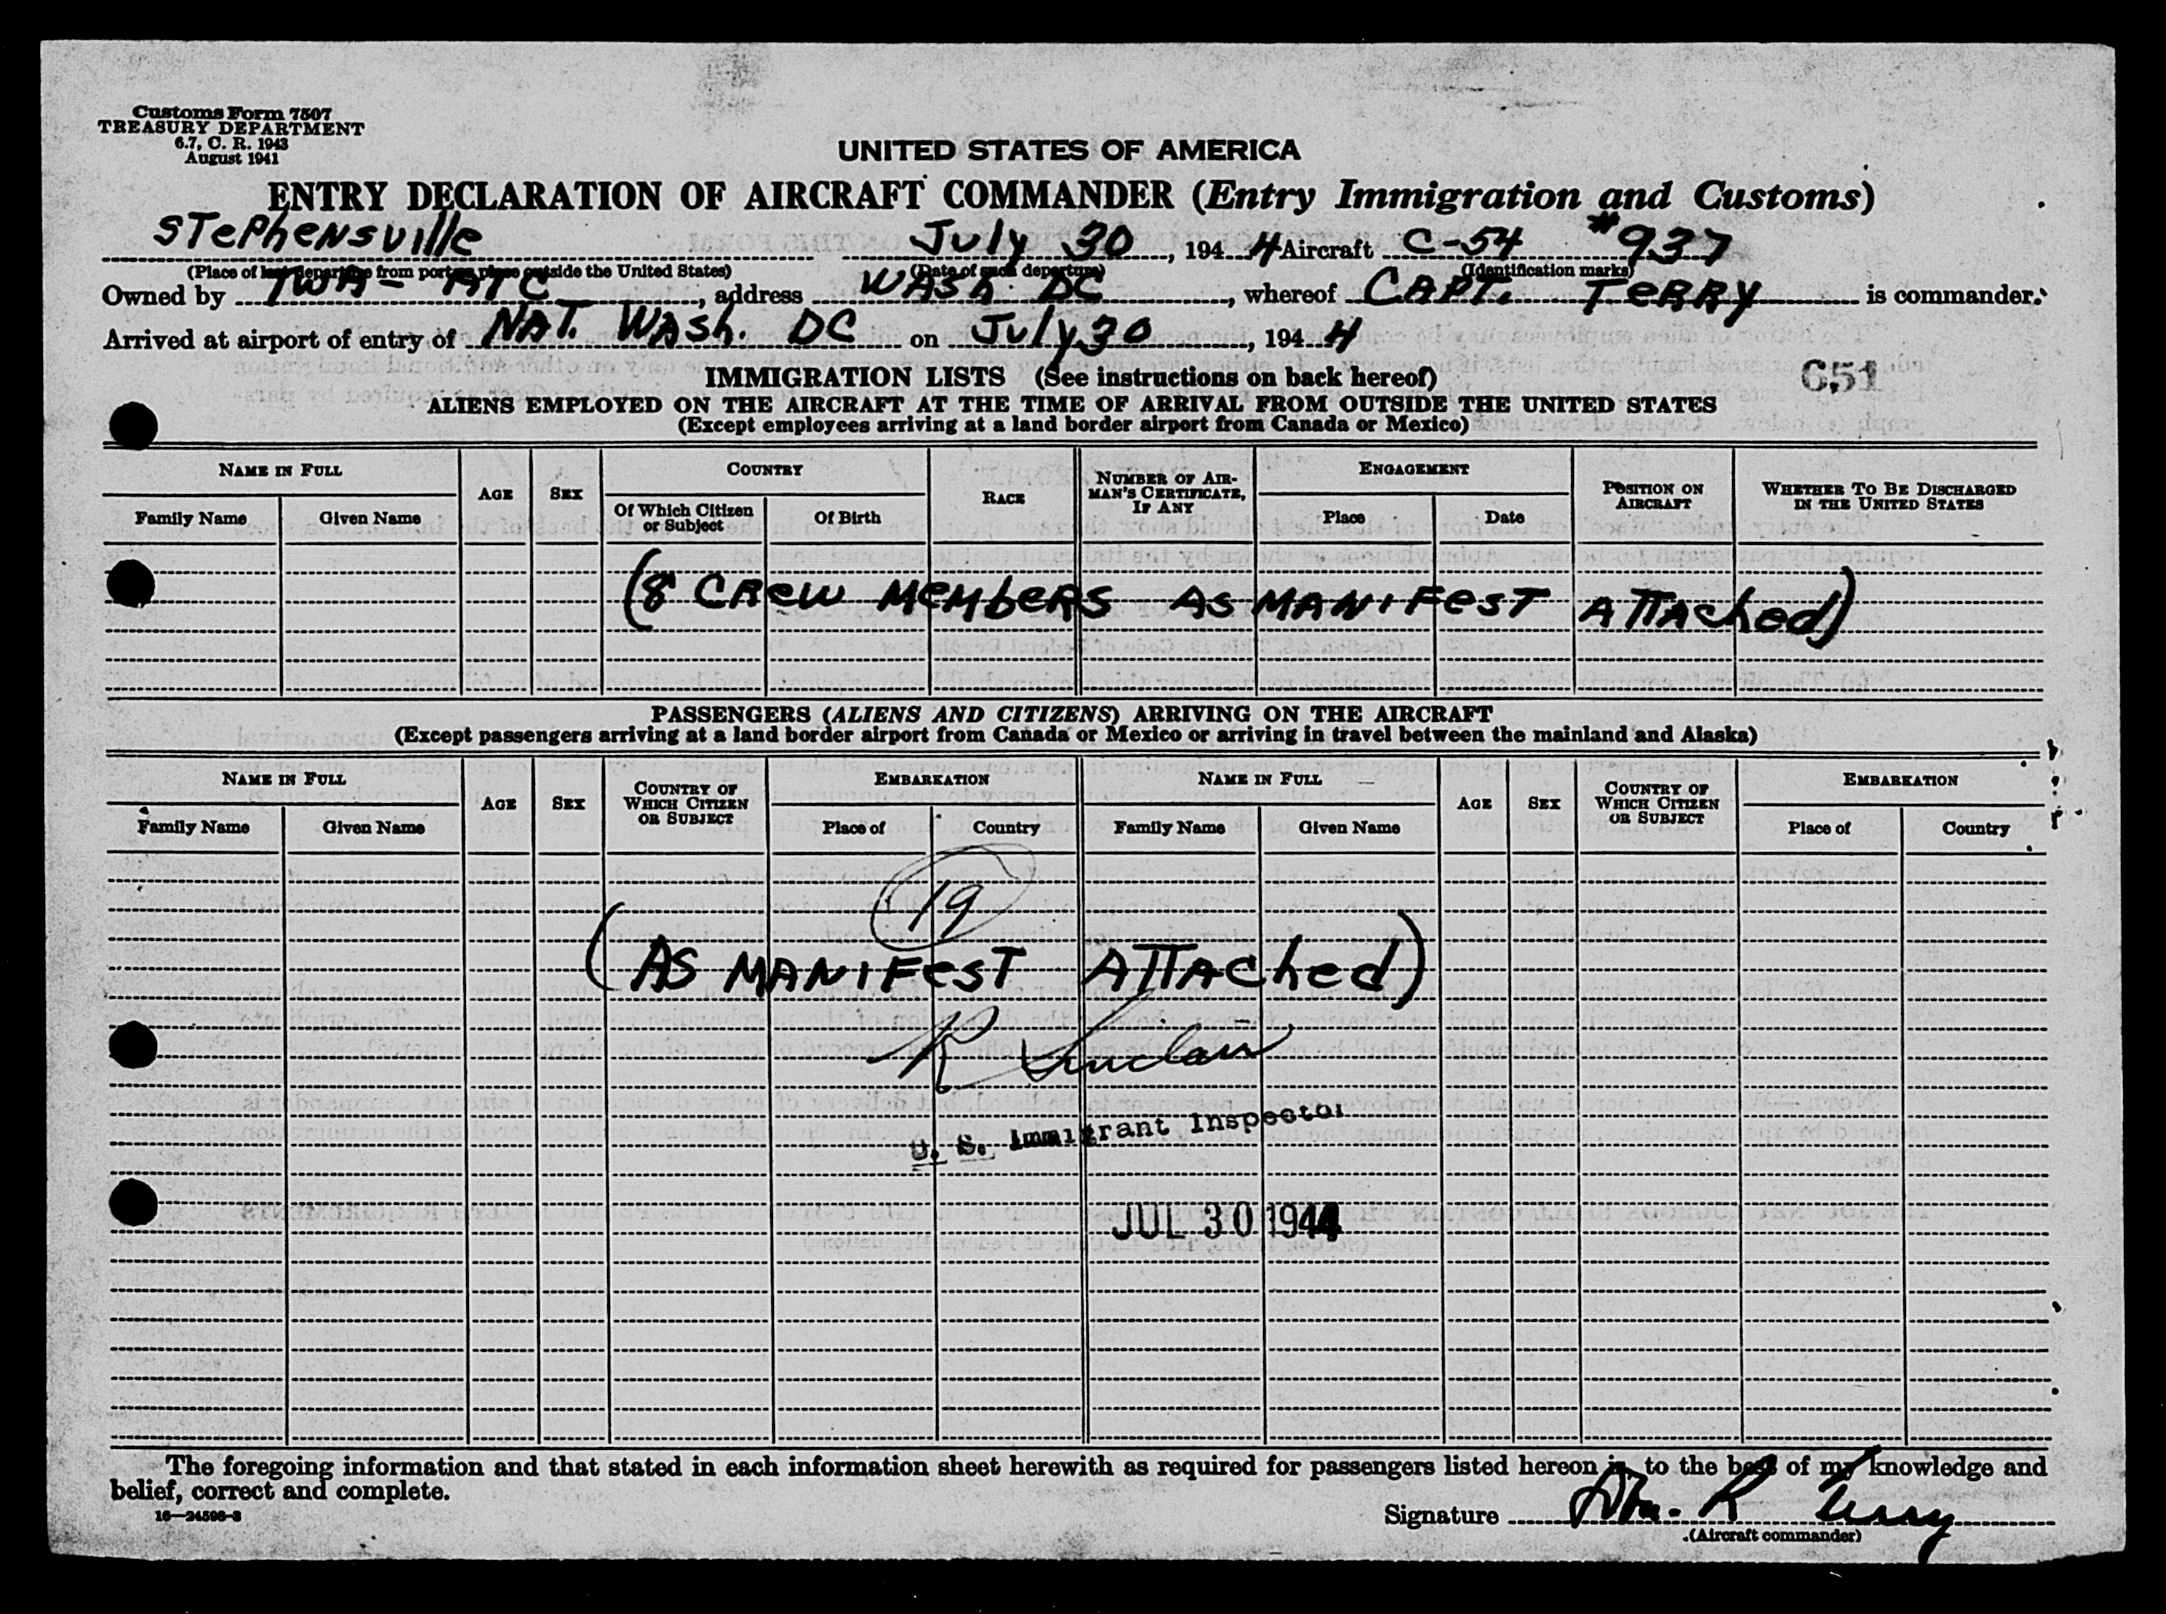 Customs Form 7507
TREASURY DEPARTMENT
6.7, C. R. 1943
August 1941
UNITED STATES OF AMERICA
ENTRY DECLARATION OF AIRCRAFT COMMANDER (Entry Immigration and Customs)
STephensville July 30, 1944 Aircraft C-54 #937
(Place of last departure from port or place outside the United States) (Date of such departure) (Identification marks)
Owned by TWA - ATC, address WAsh DC, whereof CAPT. TeRRY is commander.
Arrived at airport of entry of NAT. WAsh. DC on July 30, 1944
651
IMMIGRATION LISTS (See instructions on back hereof)
ALIENS EMPLOYED ON THE AIRCRAFT AT THE TIME OF ARRIVAL FROM OUTSIDE THE UNITED STATES
(Except employees arriving at a land border airport from Canada or Mexico)
NAME IN FULL AGE SEX COUNTRY RACE NUMBER OF AIRMAN'S CERTIFICATE, IF ANY ENGAGEMENT POSITION ON AIRCRAFT WHETHER TO BE DISCHARGED IN THE UNITED STATES
Family Name Given Name Of Which Citizen or Subject Of Birth Place Date
(8 CRew MeMbeRS AS MANIFesT ATTAched)
PASSENGERS (ALIENS AND CITIZENS) ARRIVING ON THE AIRCRAFT
(Except passengers arriving at a land border airport from Canada or Mexico or arriving in travel between the mainland and Alaska)
NAME IN FULL AGE SEX COUNTRY OF WHICH CITIZEN OR SUBJECT EMBARKATION NAME IN FULL AGE SEX COUNTRY OF WHICH CITIZEN OR SUBJECT EMBARKATION
Family Name Given Name Place of Country Family Name Given Name Place of Country
19
(AS MANIFesT ATTAched)
R Sinclair
U. S. Immigrant Inspector
JUL 30 1944
The foregoing information and that stated in each information sheet herewith as required for passengers listed hereon is, to the best of my knowledge and
belief, correct and complete.
16—24598-3
Signature Wm. R Terry
(Aircraft commander)